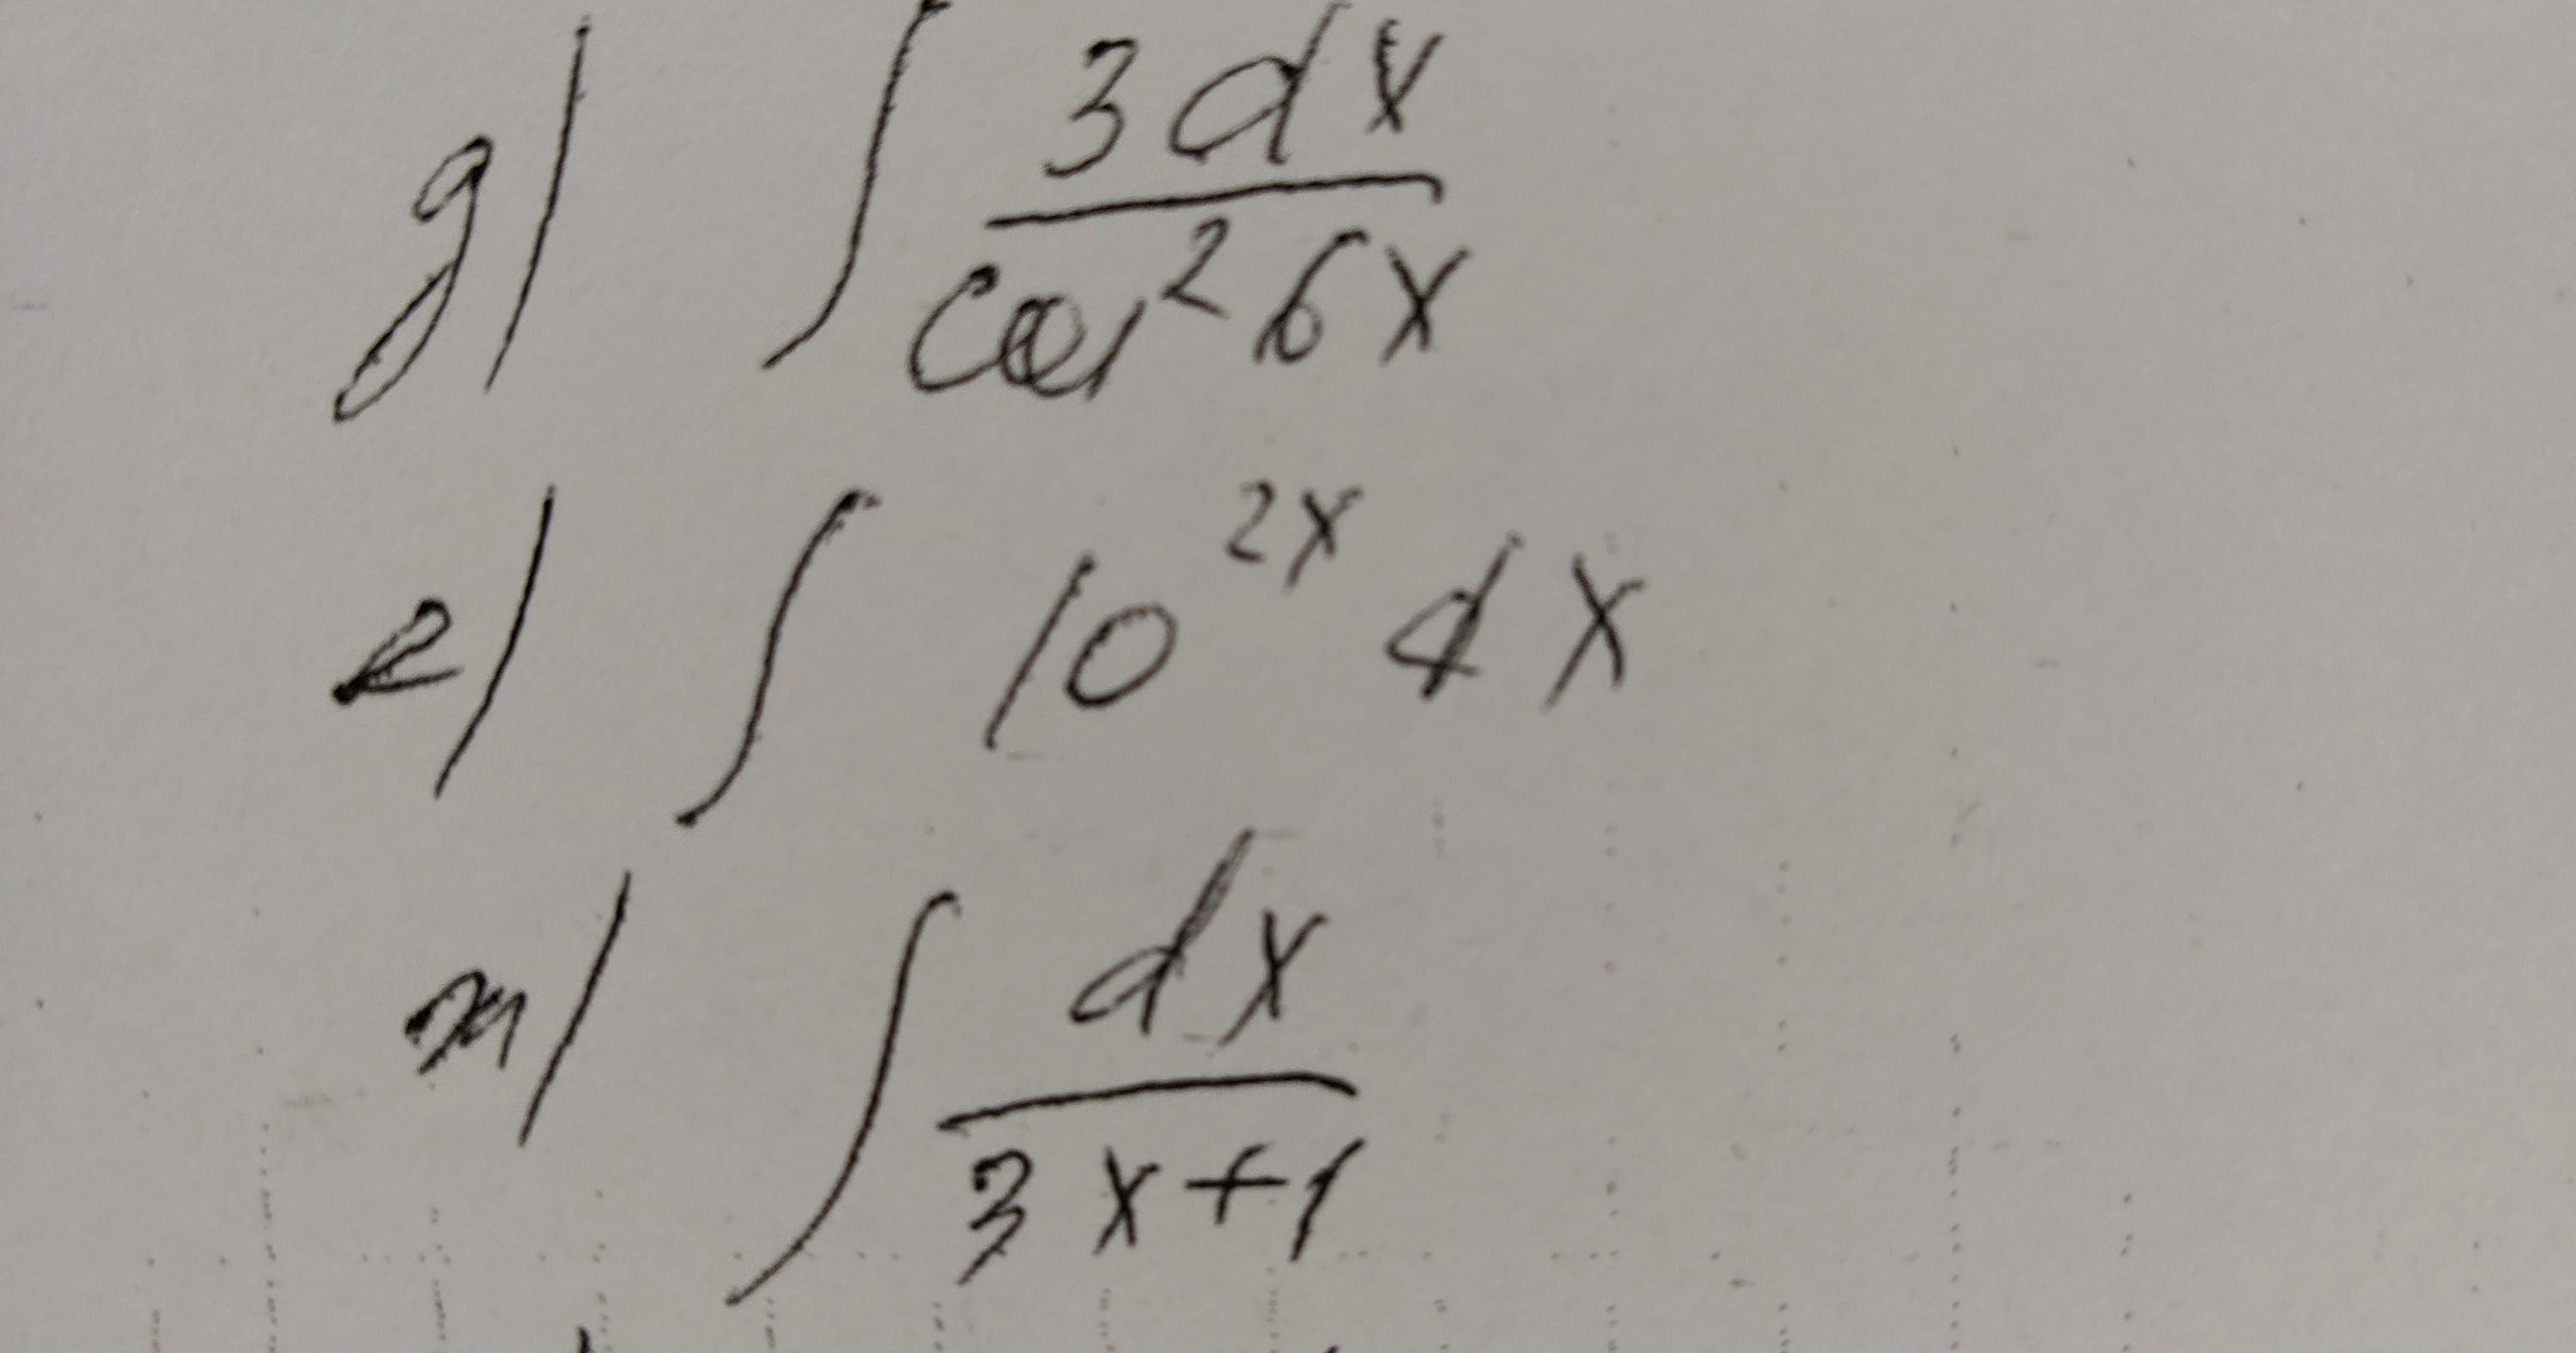 д) ∫ 3dx / cos² 6x
е) ∫ 10^{2x} dx
ж) ∫ dx / 3x+1